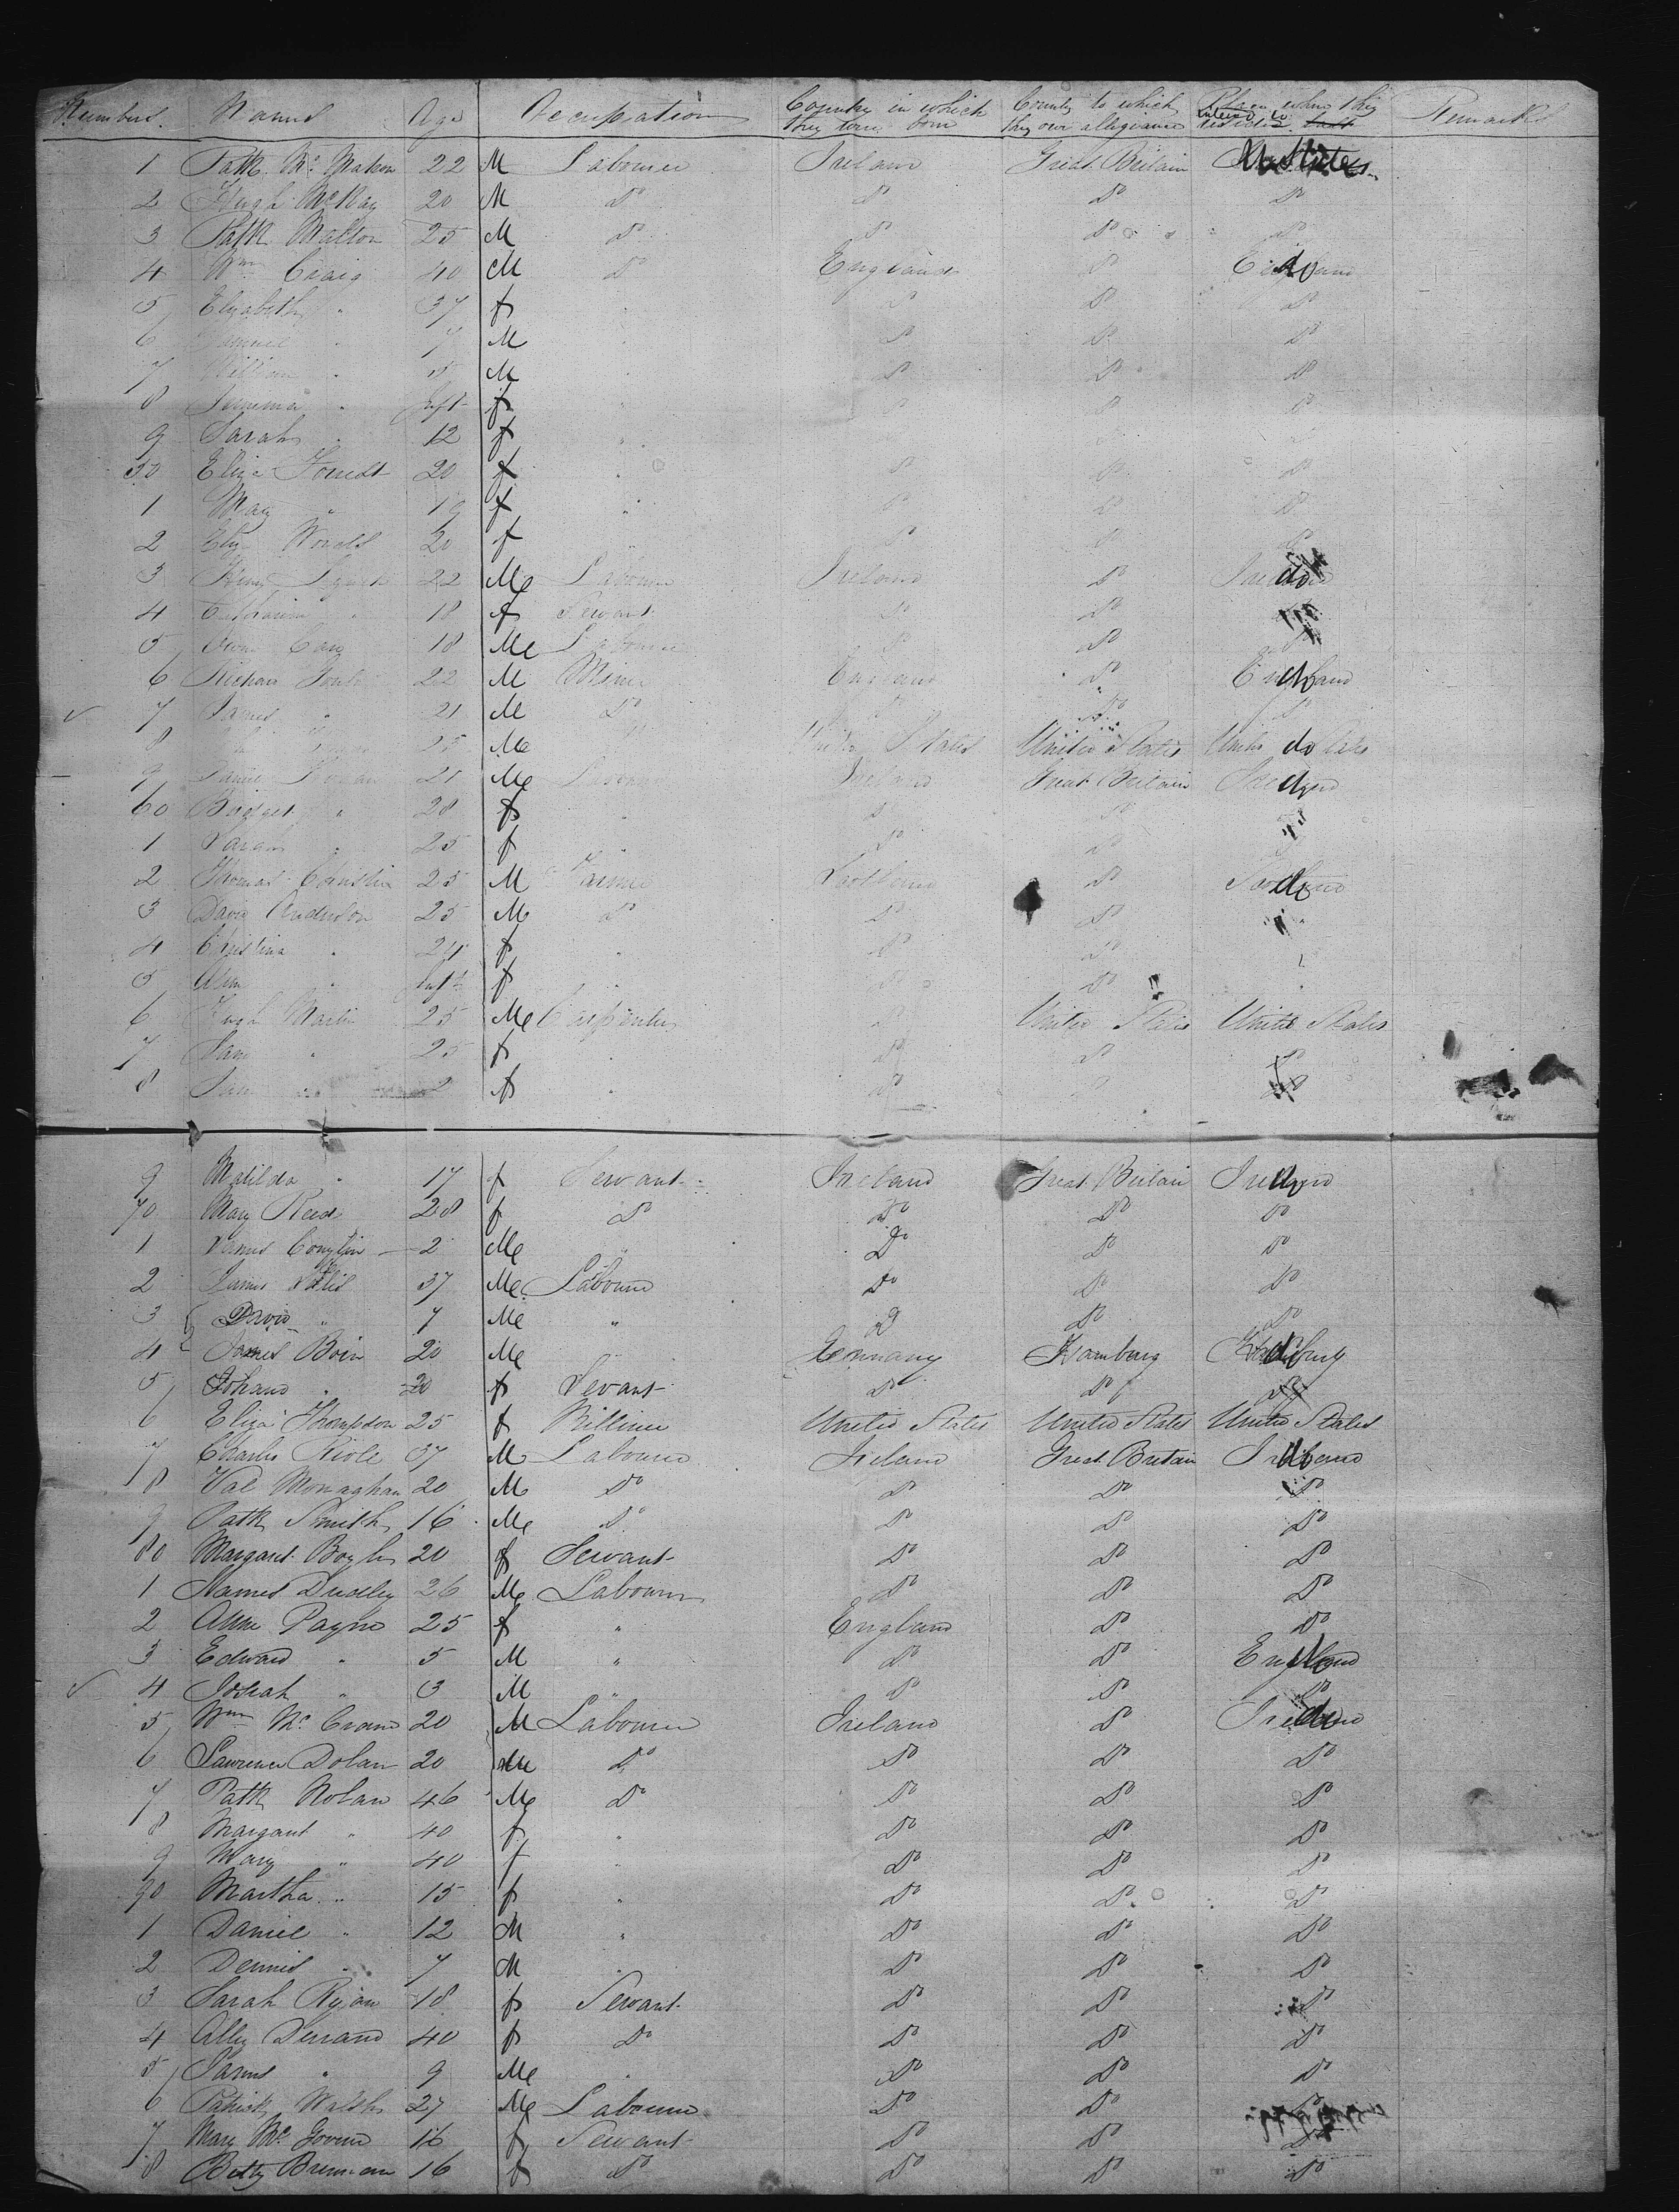 Numbers. Names Age Occupation Country in which they were born Country to which they owe allegiance Place where they intend to reside Remarks
1 Patk Mc Mahon 22 M Labourer Ireland Great Britain U. States
2 Hugh McKay 20 M Do Do Do Do
3 Patk Walton 25 M Do Do Do Do
4 Wm Craig 40 M Do England Do do
5 Elizabeth " 37 f Do Do Do
6 Samuel " 7 M Do Do Do
7 William " 5 M Do Do Do
8 Jemima " Inft f Do Do Do
9 Sarah " 12 f Do Do Do
50 Eliza Forrest 20 f Do Do Do
1 Mary " 19 f Do Do Do
2 20 f Do Do Do
3 Henry 22 M Labourer Ireland Do do
4 Catharine " 18 f Servant Do Do
5 18 M Labourer Do Do
6 Richard 22 M Miner England Do do
7 James " 21 M Do Do Do Do
8 25 M United States United States do
9 Daniel 21 M Labourer Ireland Great Britain do
60 Bridget " 28 f " Do Do "
1 Sarah " 25 f " Do Do "
2 Thomas 25 M Farmer Scotland Do do
3 David Anderson 25 M Do Do Do "
4 Christina " 24 f " Do Do "
5 Ann " Inft f Do Do "
6 Hugh Martin 25 M Carpenter Do United States United States
7 Jane " 25 f " Do Do Do
8 Jane 2 f " Do Do Do
9 Matilda " 17 f Servant Ireland Great Britain do
70 Mary Reed 28 f Do Do Do Do
1 James 2 M " Do Do Do
2 James 37 M Labourer Do Do Do
3 David " 7 M " Do Do Do
4 James Boin 20 M Germany Hamburg do
5 Johand " 20 f Servant Do Do Do
6 Eliza Thompson 25 f Milliner United States United States United States
7 Charles 37 M Labourer Ireland Great Britain do
8 Val Monaghan 20 M Do Do Do Do
9 Patk Smith 16 M Do Do Do Do
80 Margaret Boyle 20 f Servant Do Do Do
1 James Dudley 26 M Labourer Do Do Do
2 Anne Payne 25 f " England Do Do
3 Edward " 5 M " Do Do England
4 Josiah " 3 M " Do Do Do
5 Wm Mc Crann 20 M Labourer Ireland Do do
6 Lawrence Dolan 20 M Do Do Do Do
7 Patk Nolan 46 M Do Do Do Do
8 Margaret " 40 f " Do Do Do
9 Mary " 40 f " Do Do Do
90 Martha " 15 f " Do Do Do
1 Daniel " 12 M " Do Do Do
2 Dennis " 7 M " Do Do Do
3 Sarah Ryan 18 f Servant Do Do Do
4 Ally Durrand 40 f Do Do Do Do
5 James " 9 M " Do Do Do
6 Patrick Walsh 27 M Labourer Do Do Do
7 Mary Mc Govern 16 f Servant Do Do Do
8 Betty Brennan 16 f Do Do Do Do